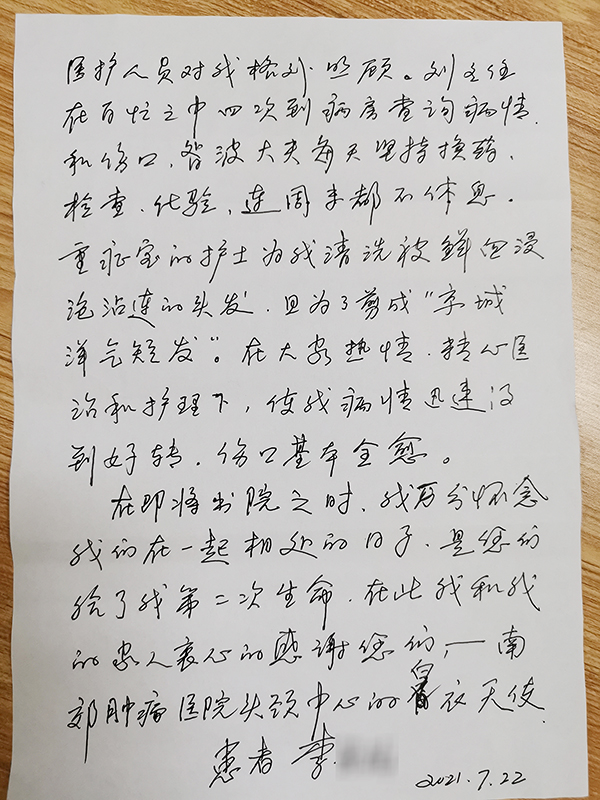 医护人员对我格外照顾。刘主任
在百忙之中四次到病房查询病情
和伤口，智波大夫每天坚持换药、
检查、化验，连周末都不休息。
重症室的护士为我清洗被鲜血浸
泡沾连的头发，且为了剪成“京城
洋气短发”。在大家热情、精心医
治和护理下，使我病情迅速得
到好转，伤口基本全愈。
在即将出院之时，我万分怀念
我们在一起相处的日子，是您们
给了我第二次生命，在此我和我
的家人衷心的感谢您们，一南
郊肿瘤医院头颈中心的白衣天使
患者 李
2021.7.22